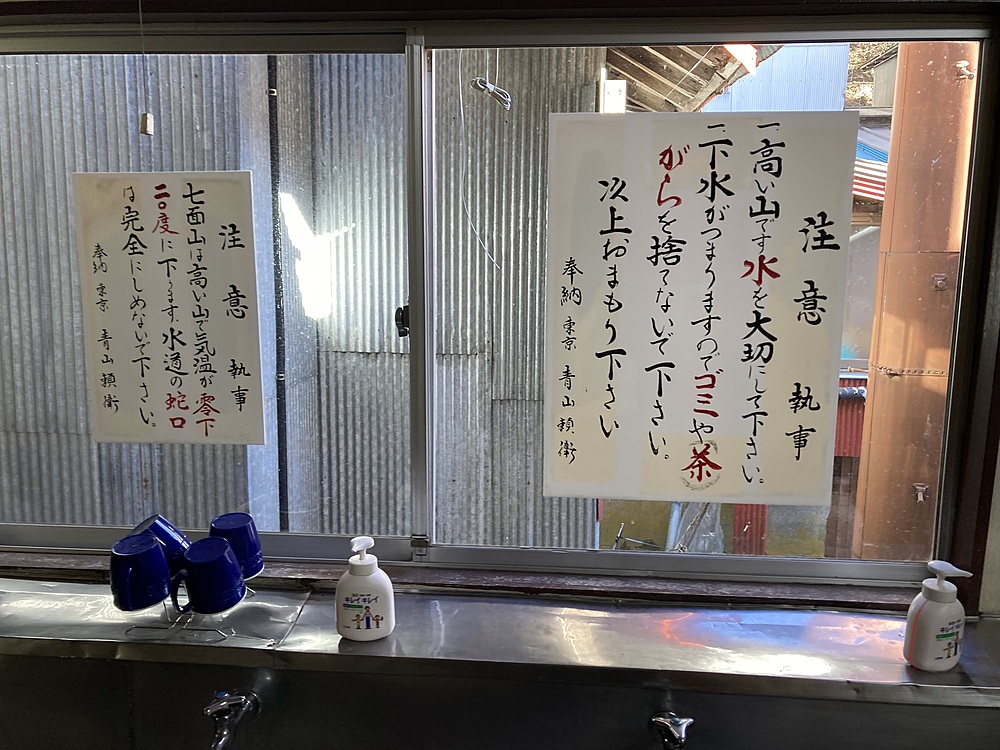 注意 執事
一高い山です水を大切にして下さい。
二下水がつまりますのでゴミや茶
がらを捨てないで下さい。
以上おまもり下さい
奉納 東京 青山 頼衛
注意 執事
七面山は高い山で気温が零下
二〇度に下ります。水道の蛇口
は完全にしめないで下さい。
奉納 東京 青山 頼衛
キレイキレイ
キレイキレイ